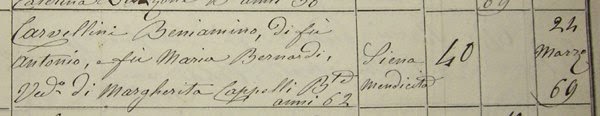 anni 56
69
Carvellini Beniamino, di fù
Antonio, e fù Maria Bernardi,
Ved.º di Margherita Cappelli
anni 62
Siena
Mendicità
40
24
Marzo
69